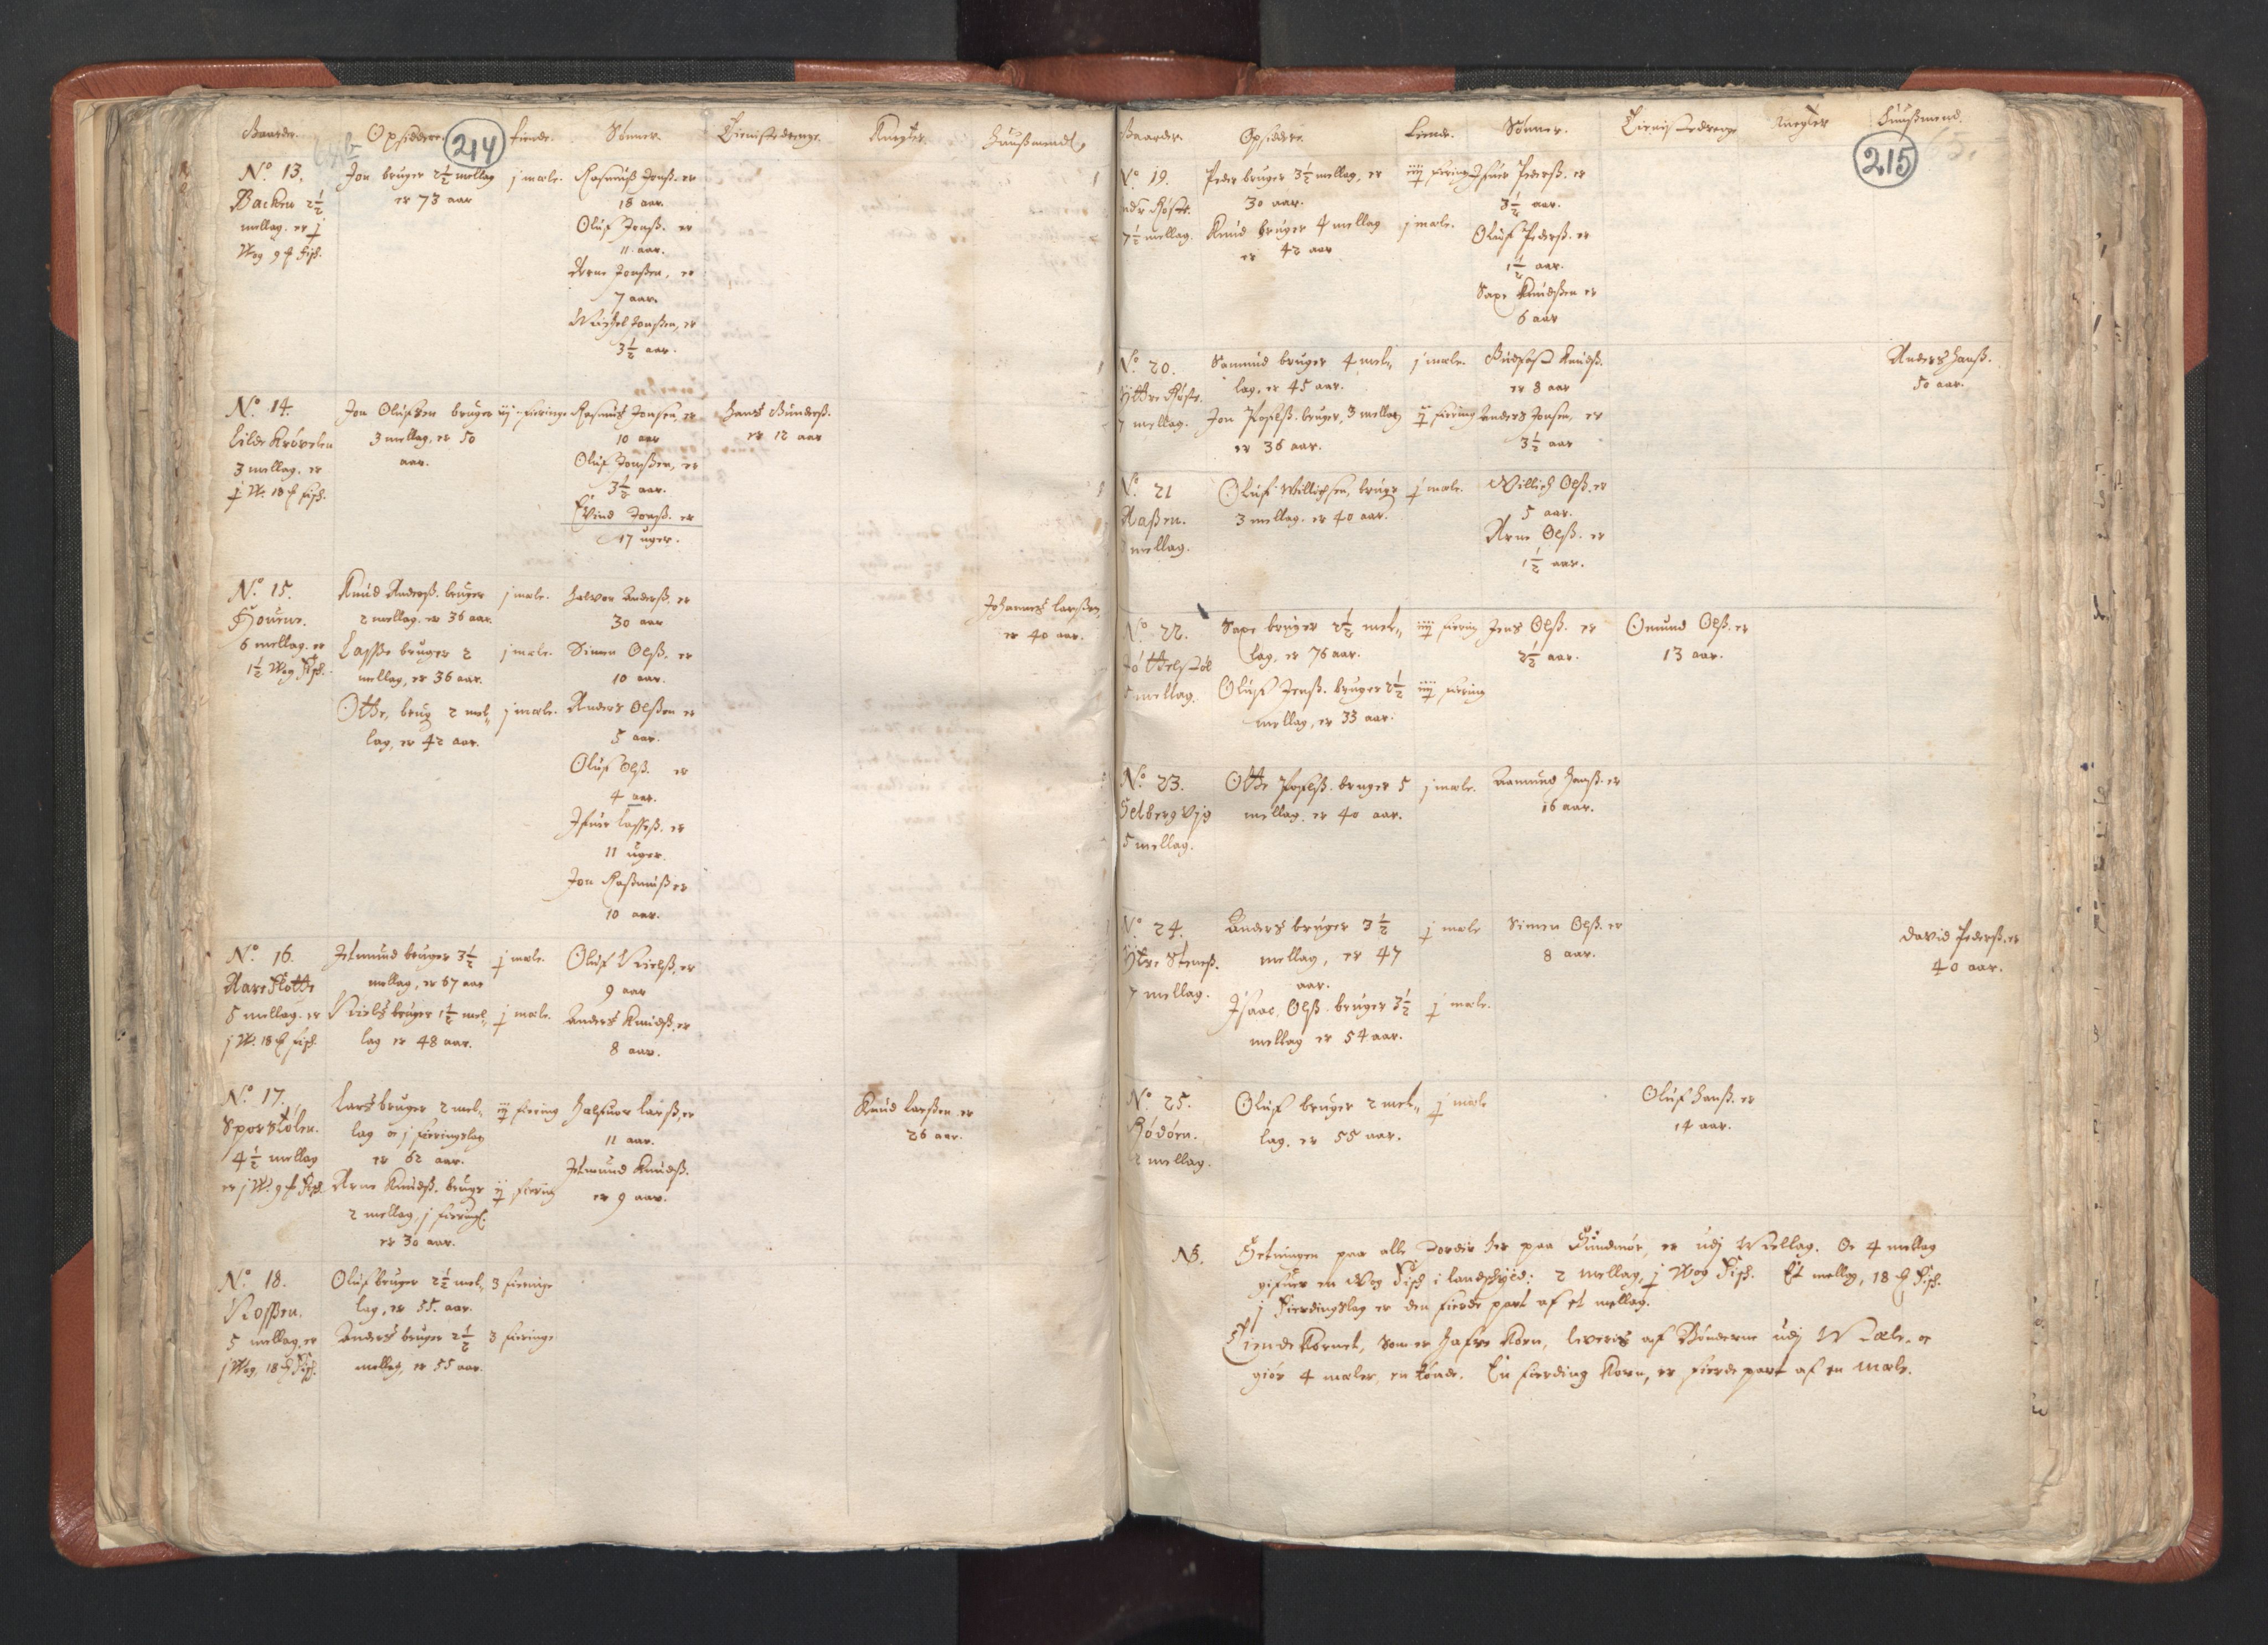 Gaarde. Opsiddere. Tiende. Sønner. Tienistedrenge. Knegter. Huußmend.
214
N.º 13.
Backen 2½
mellag. er j
Wog 9 ℔ Fisk.
Jon bruger 2½ mellag
er 73 aar
j mæle.
Rasmuß Jonß. er
18 aar.
Oluf Jonß. er
11 aar.
Arne Jonßen, er
7 aar.
Michel Jonßen, er
3½ aar.
N.º 14.
Lilde Krövelen
3 mellag. er
j W. 18 ℔ fisk.
Jon Olufsen bruger
3 mellag, er 50
aar.
iij fieringe
Rasmus Jonsen, er
10 aar
Oluf Jonßen, er
3½ aar.
Eivind Jonß. er
17 uger.
Hans Gunderß.
er 12 aar
N.º 15.
Houene.
6 mellag. er
1½ Wog Fisk.
Knud Anderß. bruger
2 mellag. er 36 aar.
Lasse bruger 2
mellag, er 36 aar.
Otte, brug 2 mel-
lag, er 42 aar.
j mæle.
j mæle.
j mæle.
Halvor Anderß. er
30 aar
Simen Olß. er
10 aar.
Anders Olßen er
5 aar.
Oluf Olß. er
4 aar.
Ifuer Lasseß. er
11 uger.
Jon Raßmuß er
10 aar.
Johannes Larßen,
er 40 aar.
N.º 16.
Aareflotte
5 mellag. er
j W. 18 ℔ fisk.
Jetmund bruger 3½
mellag, er 67 aar
Niels bruger 1½ mel-
lag er 48 aar.
j mæle.
j mæle.
Oluf Nielß. er
9 aar
Anders Knudß. er
8 aar.
N.º 17.
Sporstølen.
4½ mellag
er j W. 9 ℔ Fisk.
Lars bruger 2 mel-
lag oc j fieringslag
er 62 aar.
Arne Knudß. bruger
2 mellag, j fieringl:
er 30 aar.
iij fiering
ij fiering
Halfuor Larß. er
11 aar.
Jetmund Knudß.
er 9 aar.
Knud Larßen er
26 aar.
N.º 18.
Noßen.
5 mellag. er
j Wog, 18 ℔ Fisk.
Oluf bruger 2½ mel-
lag, er 55. aar.
Anders bruger 2½
mellag, er 55 aar.
3 fieringe
3 fieringe
Gaarde. Opsiddere. Tiende. Sønner. Tienistedrenge Knegter Huußmend.
215
N.º 19.
7½ mellag.
Peder bruger 3½ mellag, er
30 aar.
Knud bruger 4 mellag
er 42 aar
iiij fiering
j mæle.
Ifuer Pederß. er
3½ aar.
Oluf Pederß. er
1½ aar.
Saxe Knudßen er
6 aar
N.º 20.
Yttre Røste.
7 mellag.
Samund bruger 4 mel-
lag, er 45 aar.
Jon Pofelß. bruger, 3 mellag
er 36 aar.
j mæle.
ij fiering
Gudfast Knudß.
er 8 aar
Anders Jonsen, er
3½ aar
Anders Hanß.
50 aar.
N.º 21
Aaßen.
3 mellag.
Oluf Willichsen, bruger
3 mellag. er 40 aar.
j mæle.
Willich Olß. er
5 aar.
Arne Olß. er
1½ aar.
N.º 22.
Jöttelstøl
5 mellag.
Saxe bruger 2½ mel-
lag, er 76 aar.
Oluf Jenß. bruger 2½
mellag, er 33 aar.
iiij fiering
iiij fiering
Jens Olß. er
2½ aar.
Omund Olß. er
13 aar.
N.º 23.
Selbervig
5 mellag.
Otte Pofelß. bruger 5
mellag. er 40 aar.
j mæle.
Aamund Hanß. er
16 aar.
N.º 24.
Ytre Steneß.
7 mellag.
Anders bruger 3½
mellag, er 47
aar.
Isaac Olß. bruger 3½
mellag er 54 aar.
j mæle
j mæle.
Simen Olß. er
8 aar.
David Pederß. er
40 aar.
N.º 25.
Rödören.
2 mellag.
Oluf bruger 2 mel-
lag. er 55 aar.
j mæle
Oluf Hanß. er
14 aar.
NB. Setningen paa alle Jorder her paa Sundmør, er udj Mellag. Oc 4 mellag
gifuer en Wog Fisk i landskyld: 2 mellag, ½ Wog Fisk. Et mellag, 18 ℔ Fisk.
j Fierdingslag er den fierde part af et mellag.
Tiende kornet, som er Hafre korn, leveris af Bønderne udj Mæle. oc
giör 4 mæler, en tönde. En fierding korn, er fierde part af en mæle.